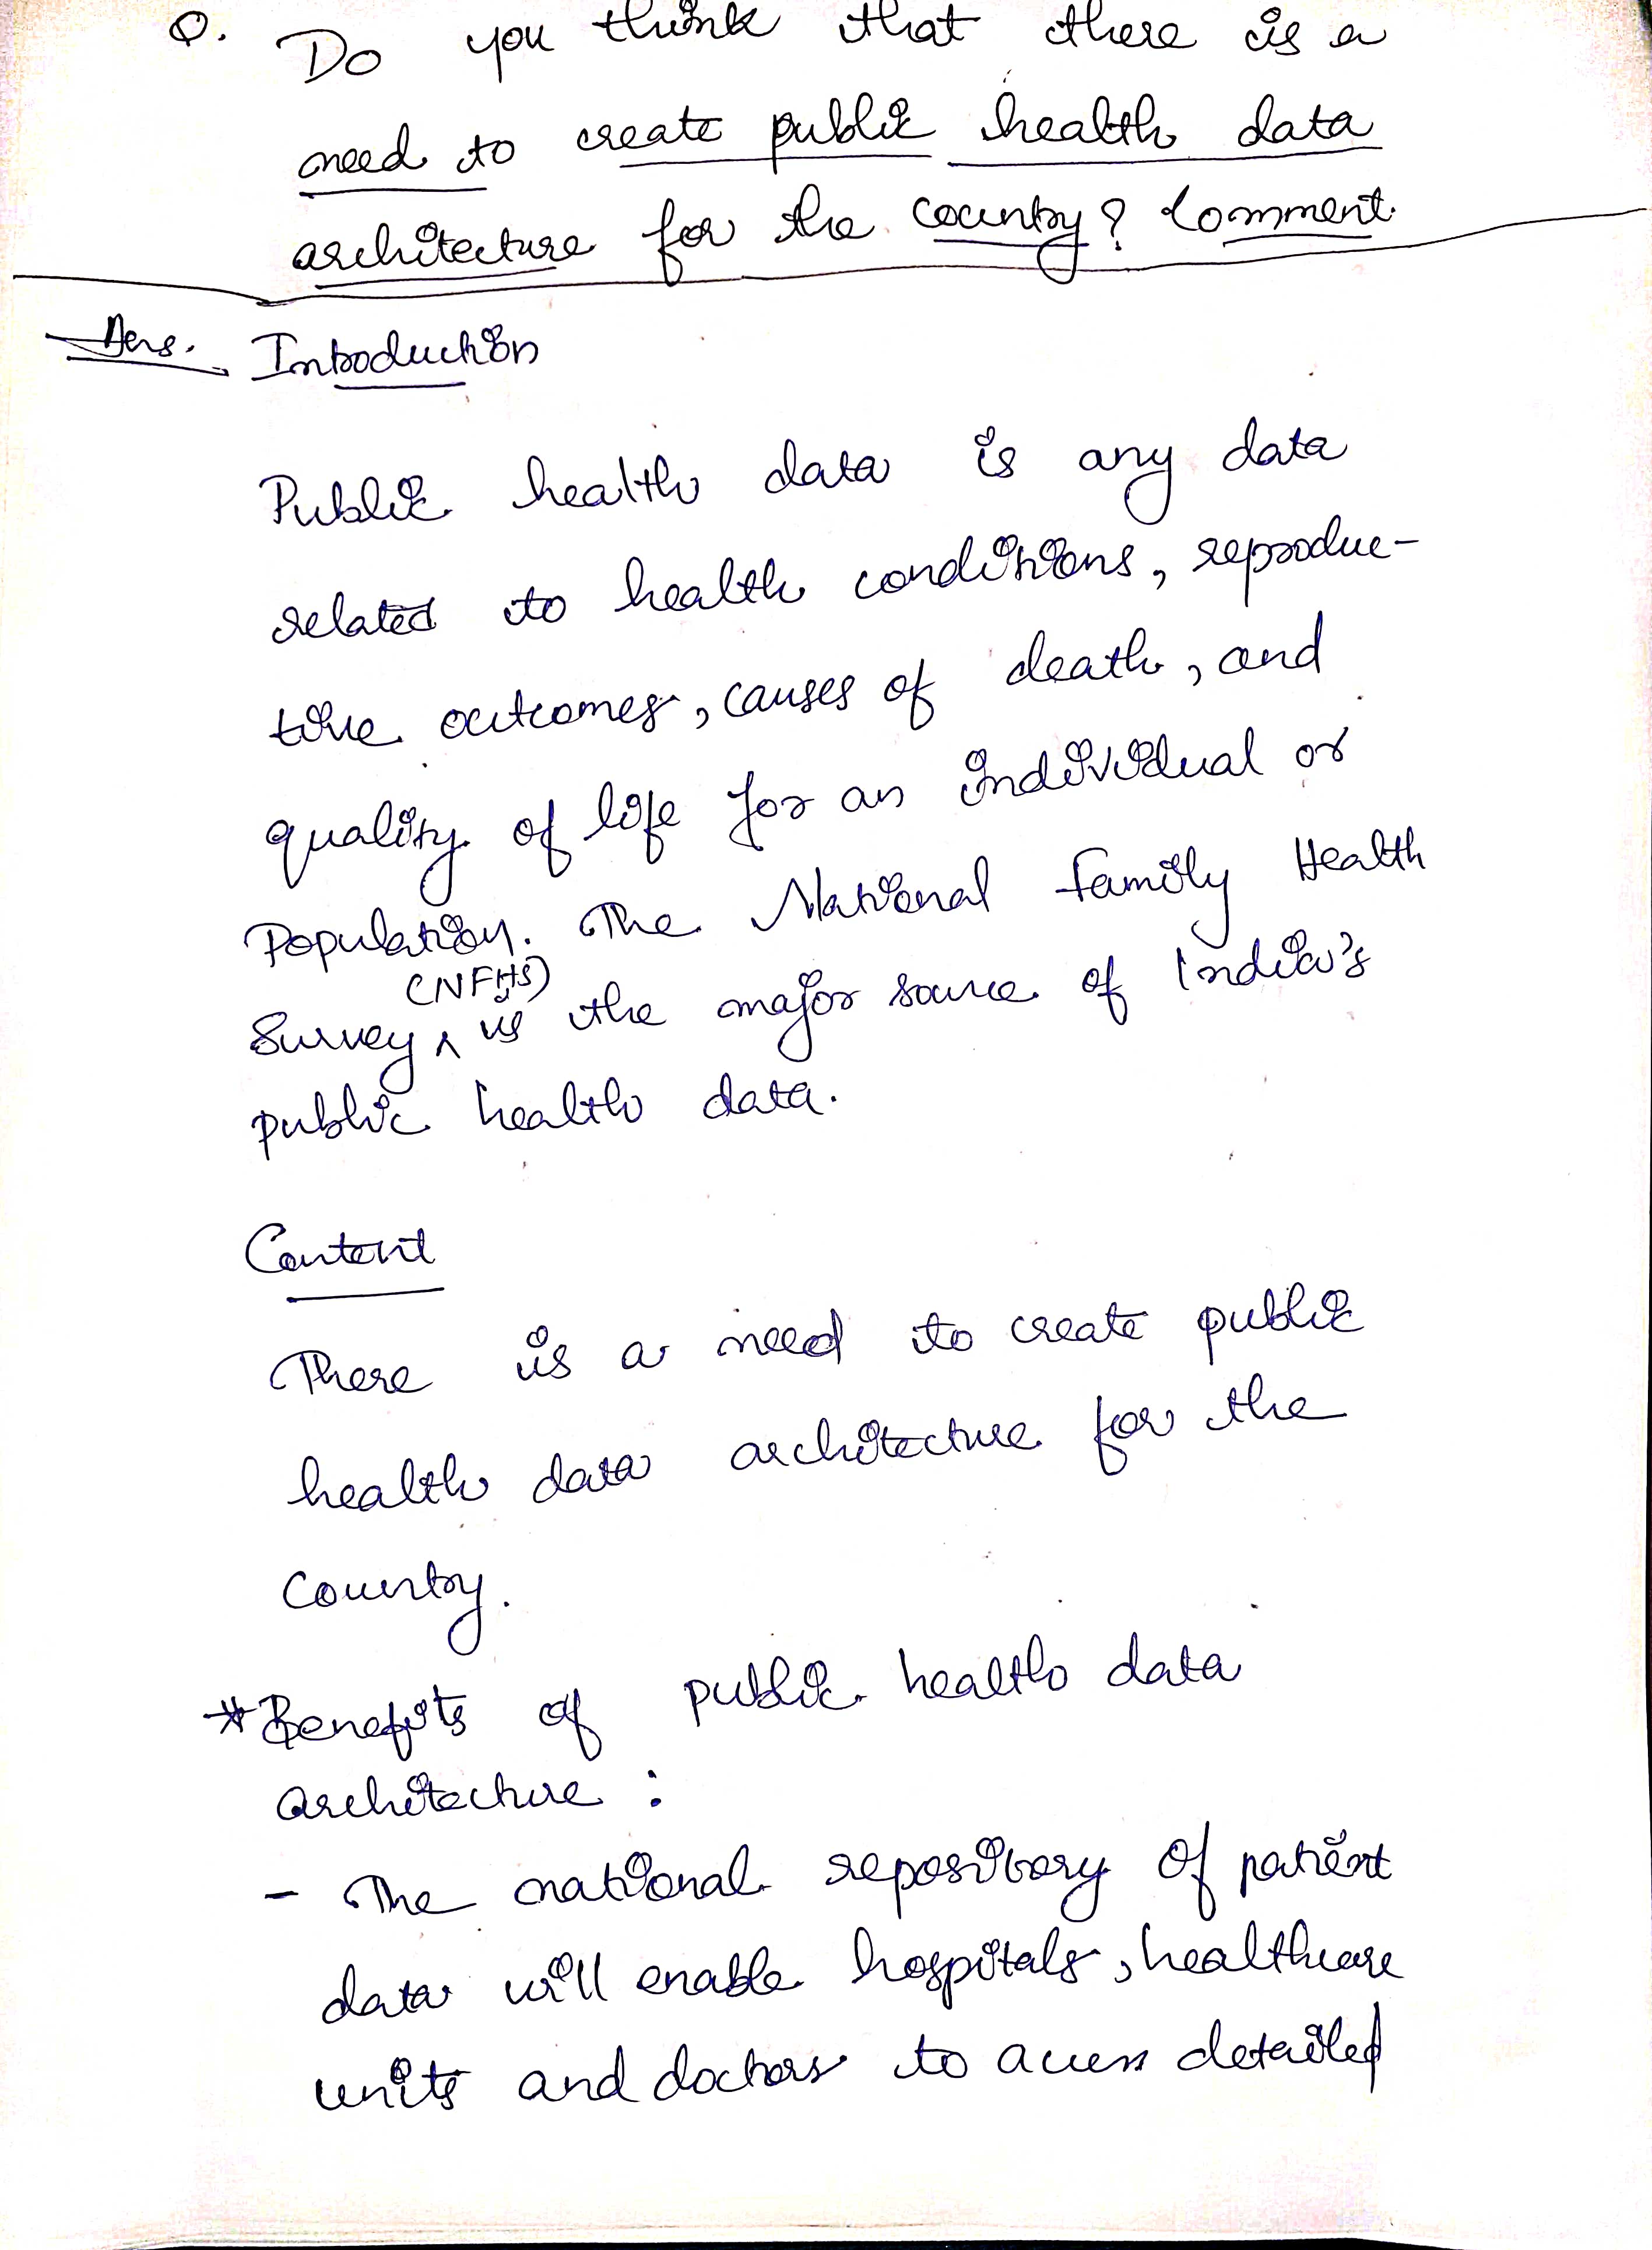 Q. Do you think that there is a
need to create public health data
architecture for the country? Comment.
Ans. Introduction
Public health data is any data
related to health conditions, reproduc-
tive outcomes, causes of death, and
quality of life for an individual or
Population. The National Family Health
(NFHS)
Survey ^ is the major source of India's
public health data.
Content
There is a need to create public
health data architecture for the
Country.
* Benefits of public health data
architecture :
- The national repository of patient
data will enable hospitals, healthcare
units and doctors to access detailed